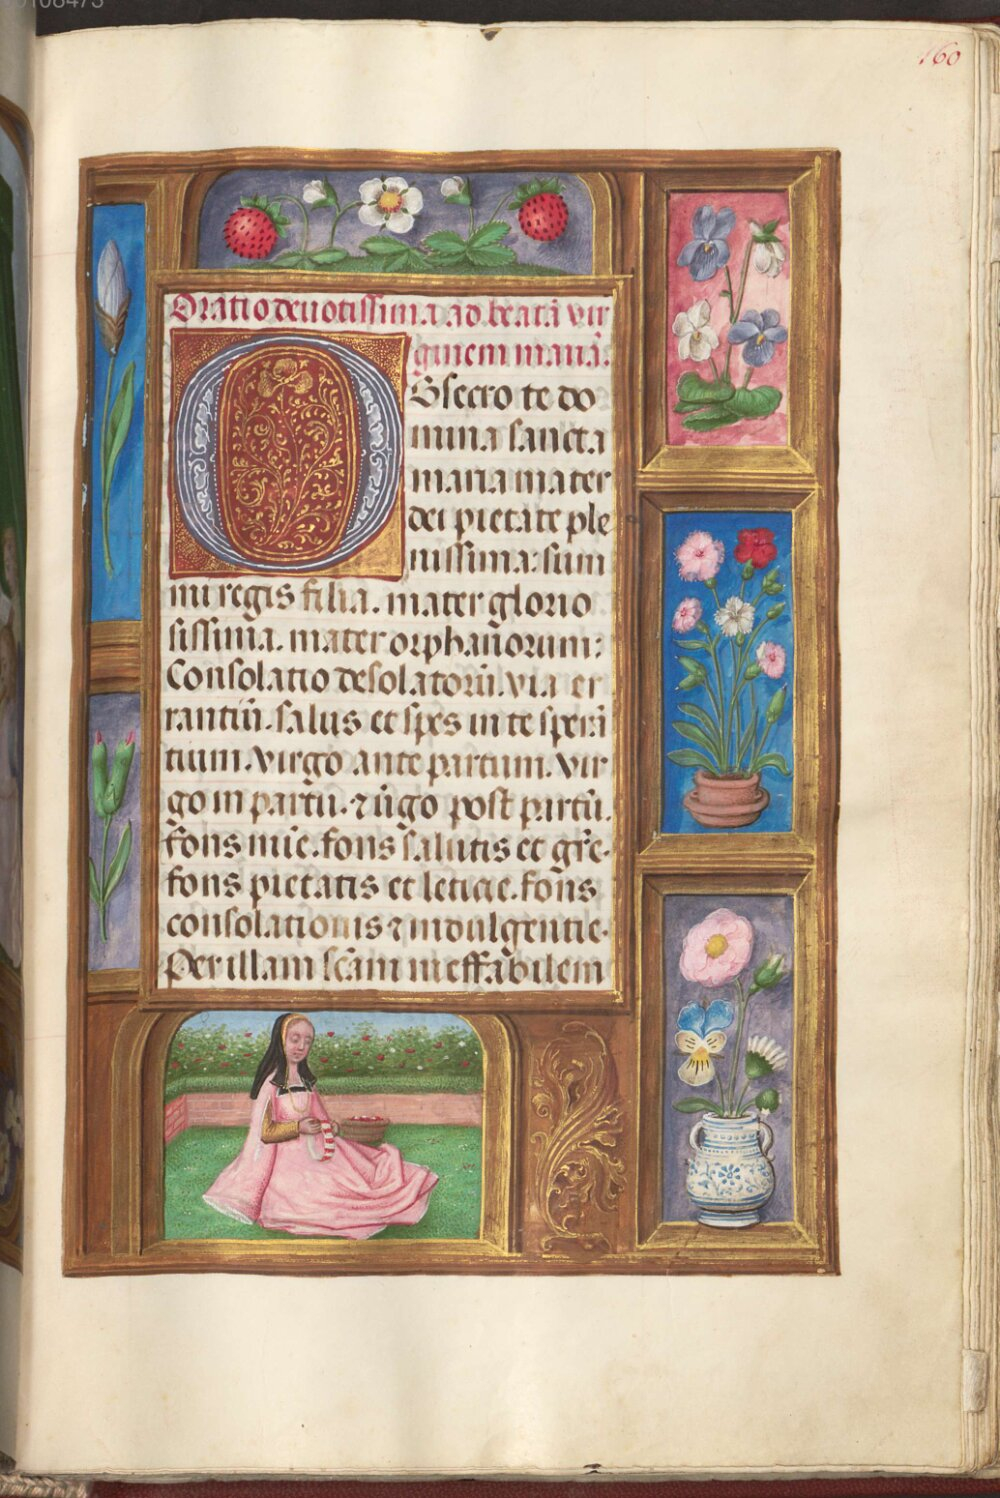 160
Oratio deuotissima ad beatā vir
ginem mariā.
Obsecro te do
mina sancta
maria mater
dei pietate ple
nissima: sum
mi regis filia. mater glorio
sissima. mater orphanorum:
Consolatio desolatorū. via er
rantiū. salus et spes in te sperā
tium. virgo ante partum. vir
go in partu. ⁊ v̄go post partū.
fons mīe. fons salutis et grē.
fons pietatis et leticie. fons
consolationis ⁊ indulgentie.
Per illam scām ineffabilem